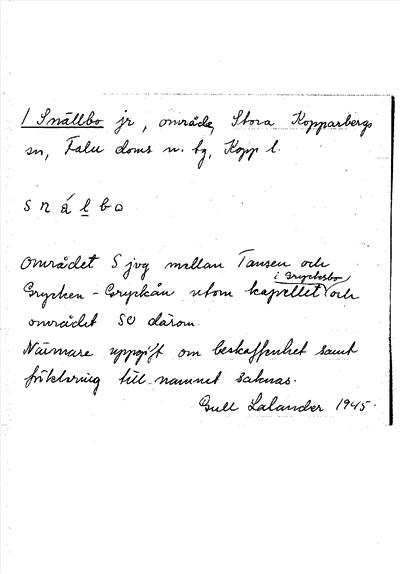 1 Snällbo jr, område, Stora Kopparbergs
sn, Falu doms n. tg, Kopp l.
s n á l b o
Området S jvg mellan Tansen och
i Grycksbo
Grycken - Gryckån utom kapellet och
området SO därom.
Närmare uppgift om beskaffenhet samt
förklaring till namnet saknas.
Gull Lalander 1945.